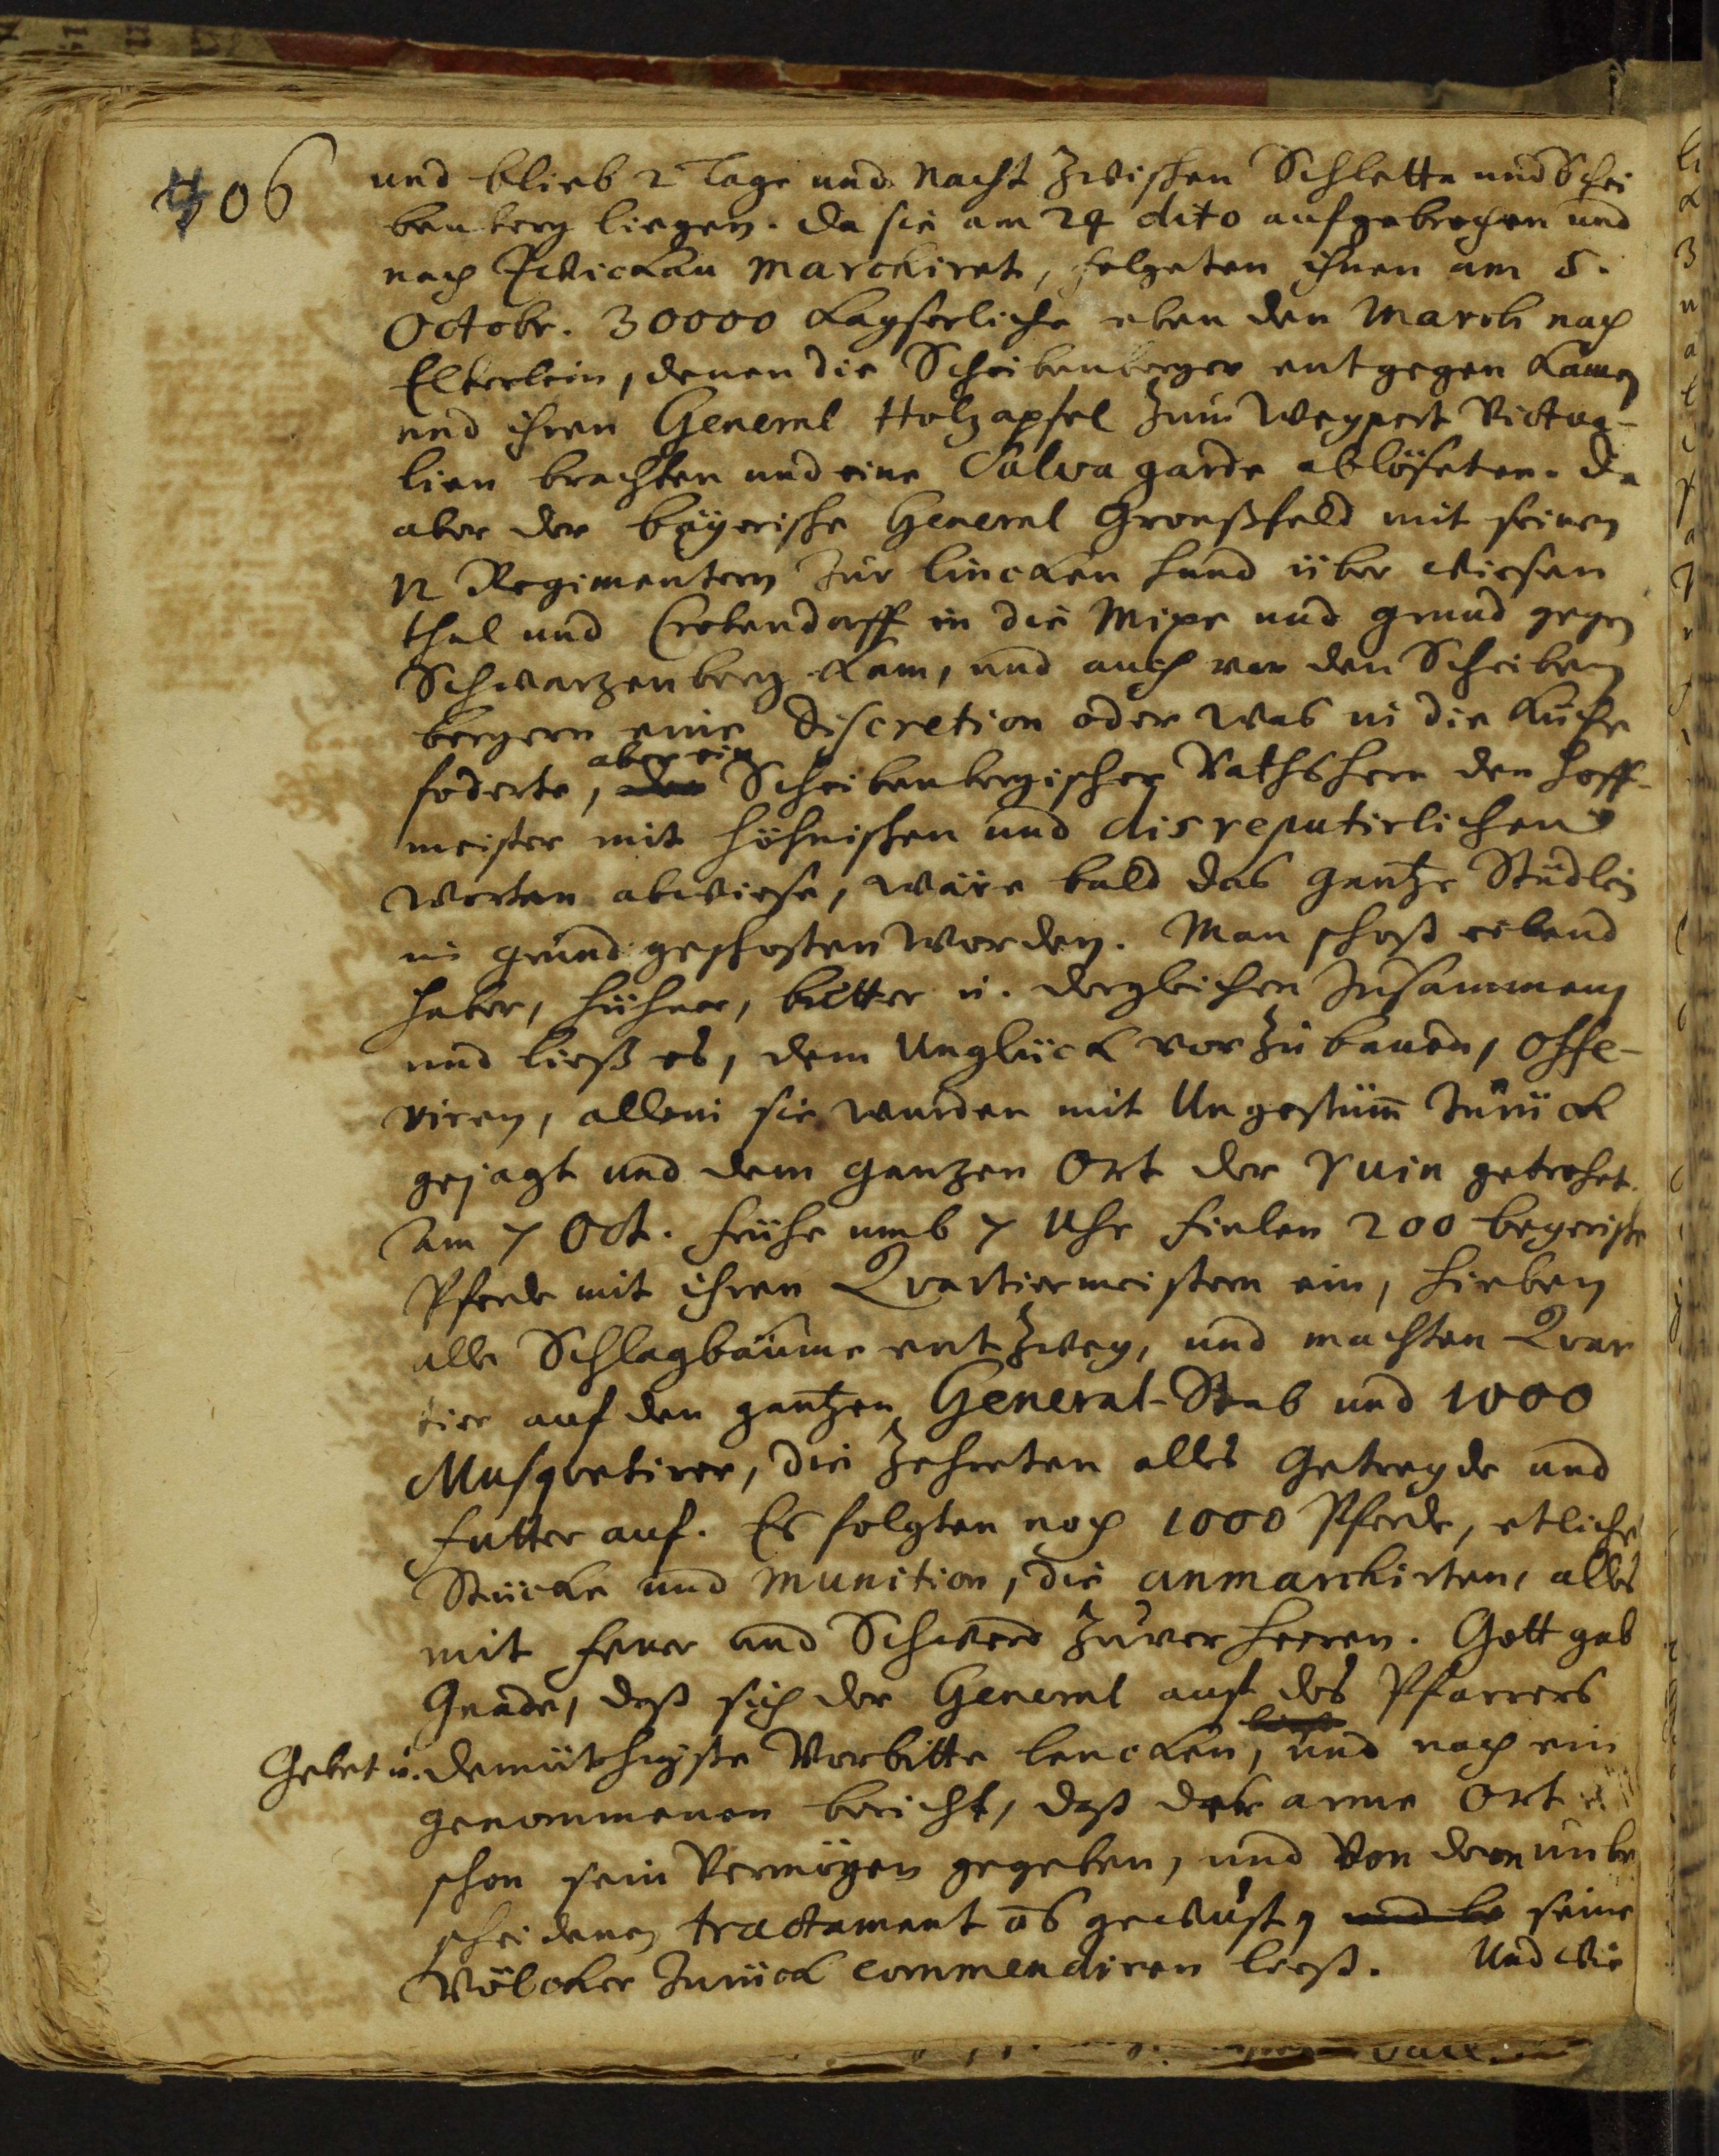 406
und blieb 2 Tage und Nacht zwischen Schletta und Schei
benberg liegen. Da sie am 24 dito aufgebrochen und
nach Zwickau marchiret, folgeten ihnen am 5.
Octobr. 30000 Kayserliche eben den March nach
Elterlein, denen die Scheibenberger entgegen kamen
und ihren General Holzapfel zum Weypert Victua-
lien brachten und eine Salva garde ablöseten. Da
aber der bäyerische General Gronßfeld mit seinen
12 Regimentern zur lincken Hand über Wiesen
thal und Crotendorff in die Mipe und grund gegen
Schwarzenberg kam, und auch von den Scheiben
bergern eine Discretion oder was in die Küche
foderte, aber ein Scheibenbergischer Rathsherr den Hoff-
meister mit höhnischen und disreputirlichen
Worten abwiese, wäre bald das gantze Städlein
in grund geschossen worden. Man schoß eilend
Haber, Hühner, butter u. dergleichen zusammen
und ließ es, dem Unglück vorzubauen, offe-
riren, allein sie wurden mit Ungestüm zurück
gejagt und dem ganzen Ort der ruin getrohet.
Am 7 Oct. frühe umb 7 Uhr fielen 200 beyerische
Pferde mit ihren Qvartiermeistern ein, hieben
alle Schlagbäume entzwey, und machten Qvar
tier auf den gantzen General-Stab und 1000
Musqvetirer, die zehreten alles Getreyde und
Futter auf. Es folgten noch 1000 Pferde, etliche
Stücke und Munition, die anmarchirten, alles
mit Feuer und Schwerd zu verheeren. Gott gab
Gnade, daß sich der General auf des Pfarrers
Gebet u. demüthigste Vorbitte lencken, und nach ein
genommenen bericht, daß der arme Ort
schon sein Vermögen gegeben, und von dem unbe
scheidenen tractament os gewust, und le seine
Völcker zurück commendiren ließ. Und wie